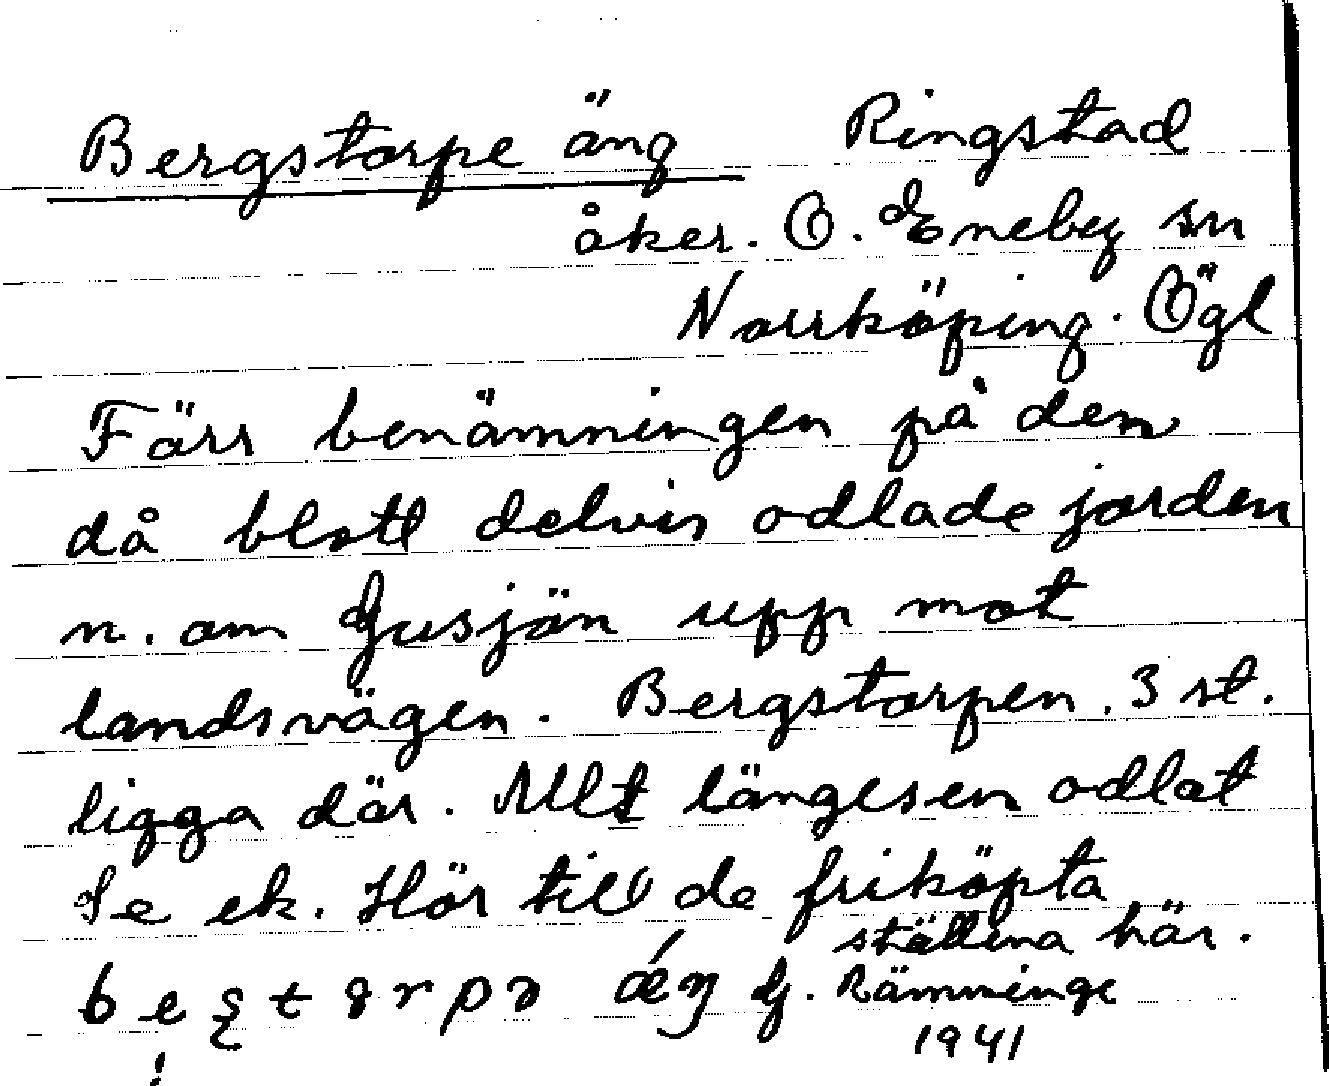 Bergstorpe äng Ringstad
åker. Ö. Eneby sn
Norrköping. Ögl
Förr benämningen på den
då blott delvis odlade jorden
n. om Gusjön upp mot
landsvägen. Bergstorpen. 3 st.
ligga där. Allt längesen odlat
Se ek. Hör till de friköpta
ställena här.
G. Rämninge
1941